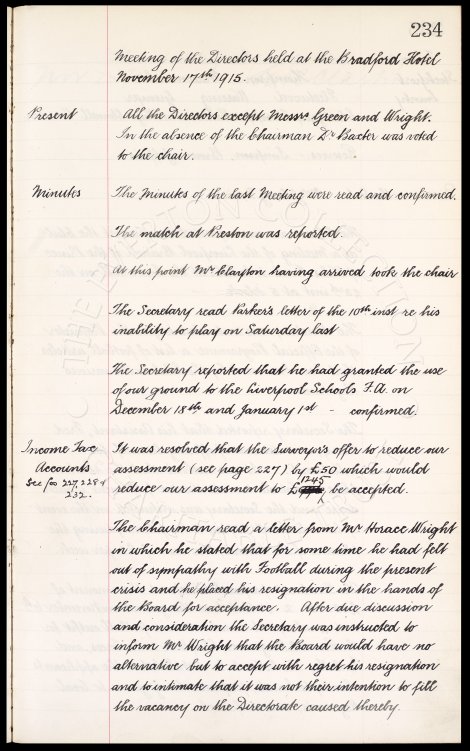 234
Meeting of the Directors held at the Bradford Hotel
November 17th 1915.
Present
All the Directors except Messrs. Green and Wright.
In the absence of the Chairman Dr Baxter was voted
to the chair.
Minutes
The Minutes of the last Meeting were read and confirmed.
The match at Preston was reported
At this point Mr Clayton having arrived took the chair
The Secretary read Parker's letter of the 10th inst re his
inability to play on Saturday last
The Secretary reported that he had granted the use
of our ground to the Liverpool Schools F.A. on
December 18th and January 1st - confirmed.
Income Tax
Accounts
See fos 227, 228 &
232.
It was resolved that the Surveyor's offer to reduce our
assessment (see page 227) by £50 which would
1245
reduce our assessment to £ be accepted.
The Chairman read a letter from Mr Horace Wright
in which he stated that for some time he had felt
out of sympathy with Football during the present
crisis and he placed his resignation in the hands of
the Board for acceptance. After due discussion
and consideration the Secretary was instructed to
inform Mr Wright that the Board would have no
alternative but to accept with regret his resignation
and to intimate that it was not their intention to fill
the vacancy on the Directorate caused thereby.
THE EVERTON COLLECTION